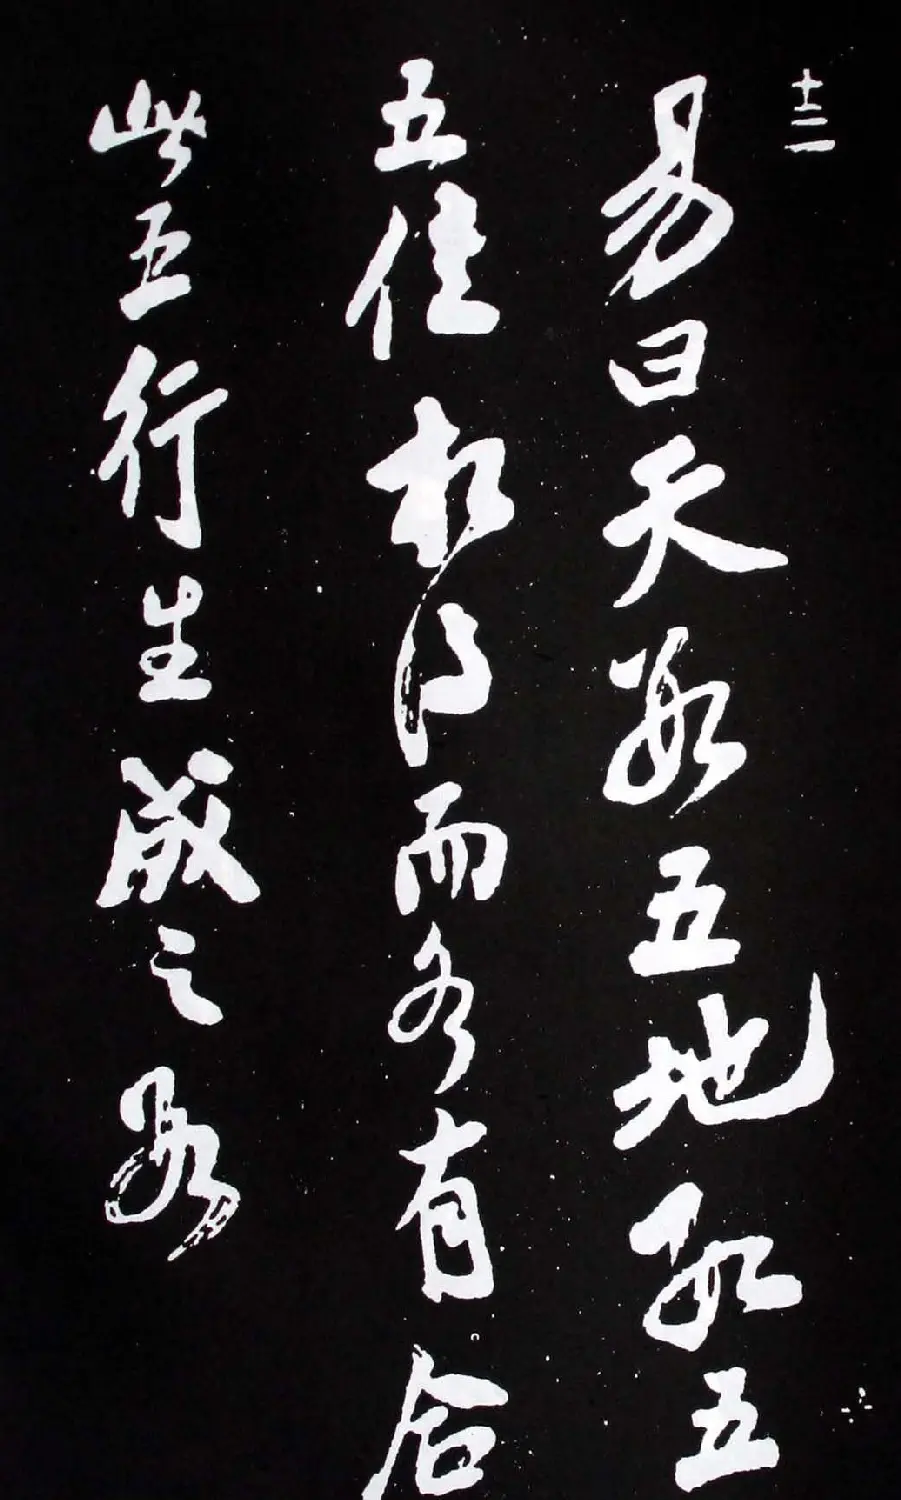 十二
易曰天数五地数五
五位相得而各有合
此五行生成之数